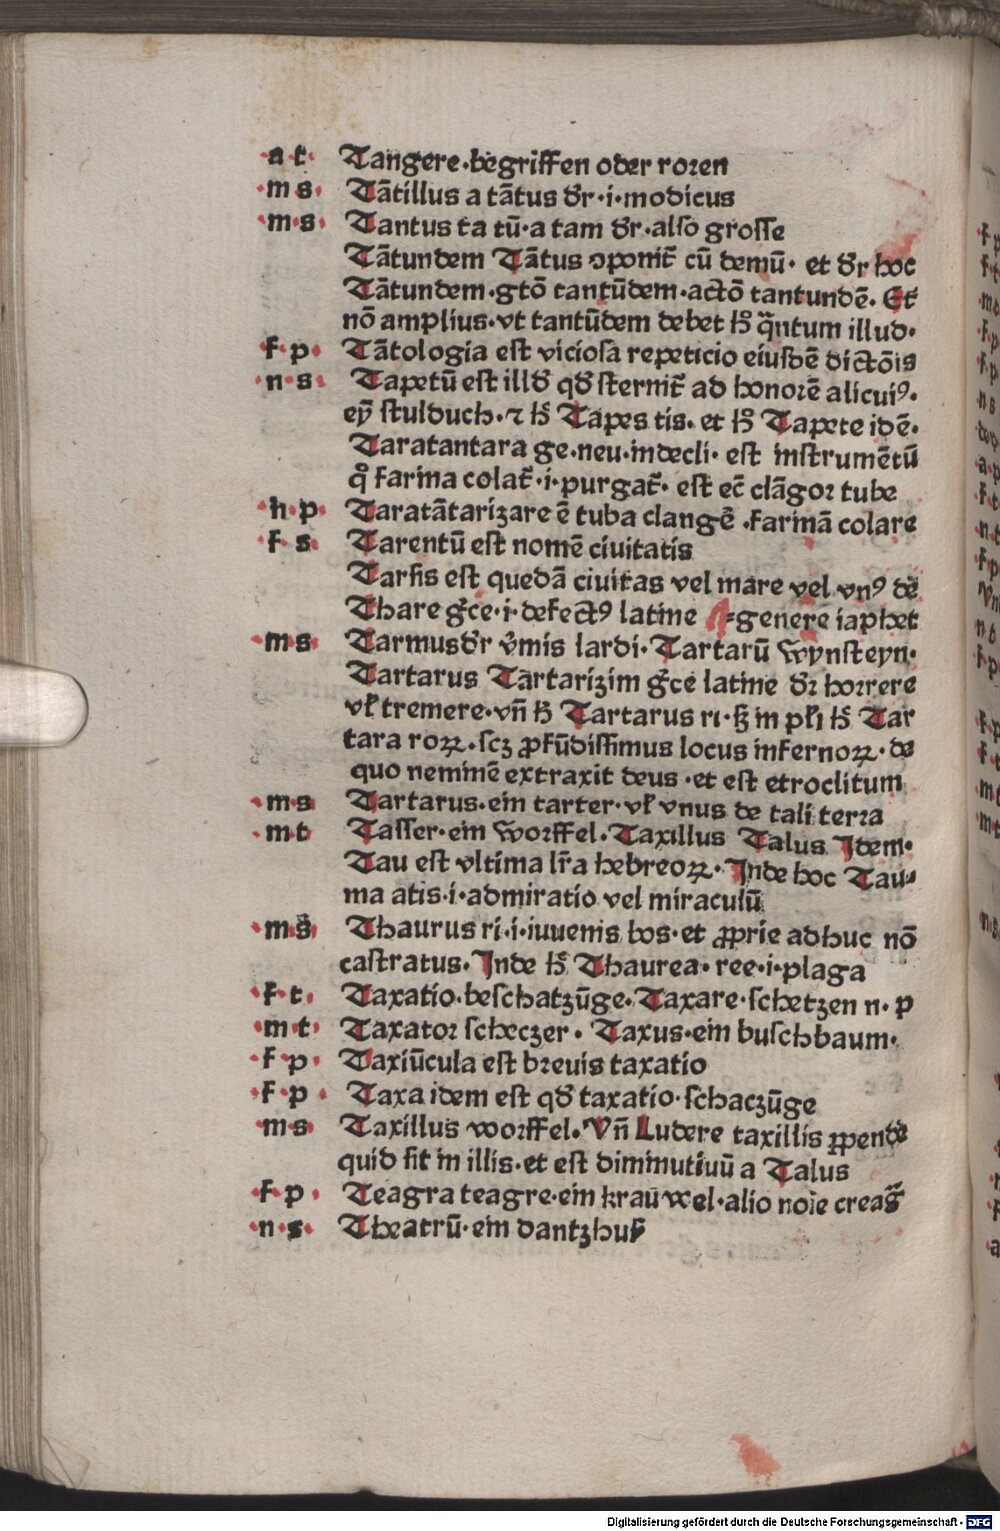 ·a·t· Tangere·begriffen oder roren
·m s· Tātillus a tātus dr̄·i·modicus
·m·s· Tantus ta tū·a tam dr̄·also grosse
Tātundem Tātus ɔponit̄ cū demū· et dr̄ hoc
Tātundem·gtō tantūdem·actō tantundē· Et
nō amplius·vt tantūdem debet hʒ qͣntum illud·
·f·p· Tātologia est viciosa repeticio eiusdē dictōis
·n·s· Tapetū est illd̄ qd̄ sternit̄ ad honorē alicuiꝰ·
eyn̄ stulduch·⁊ hʒ Tapes tis· et hʒ Tapete idē·
Taratantara ge·neu·indecli· est instrumētū
qͦ farina colat̄·i·purgat̄· est ec̄ clāgor tube
·h·p· Taratātarizare ē tuba clangē ·farinā colare
·f·s· Tarentū est nomē ciuitatis
Tarsis est quedā ciuitas vel mare vel vnꝰ de
Thare gr̄ce·i·defectꝰ latine genere iaphet
·m·s· Tarmus dr̄ v̄mis lardi· Tartarū wynsteyn·
Tartarus Tartarizim gr̄ce latine dr̄ horrere
vl̄ tremere·vn̄ hʒ Tartarus ri·sʒ in pl̄i hʒ Tar
tara roꝝ·scʒ ꝓfūdissimus locus infernoꝝ·de
quo neminē extraxit deus·et est etroclitum
·m·s Tartarus·ein tarter·vl̄ vnus de tali terra
·m t Tasser·ein worffel·Taxillus Talus Idem·
Tau est vltima lr̄a hebreoꝝ· Inde hoc Tau⸗
ma atis·i·admiratio vel miraculū
·m·s· Thaurus ri·i·iuuenis bos·et ꝓprie adhuc nō
castratus· Inde hʒ Thaurea· ree·i·plaga
·f·t· Taxatio·beschatzūge·Taxare·schetzen n· p
·m·t· Taxator scheczer· Taxus·ein buschbaum·
·f·p· Taxiūcula est breuis taxatio
·f·p· Taxa idem est qd̄ taxatio·schaczūge
·m·s· Taxillus worffel· Vn̄ Ludere taxillis ꝓpende
quid sit in illis·et est diminutiuū a Talus
·f·p· Teagra teagre·ein krauwel·alio noīe creagͣ
·n·s· Theatrū·ein dantzhuß
Digitalisierung gefördert durch die Deutsche Forschungsgemeinschaft - DFG